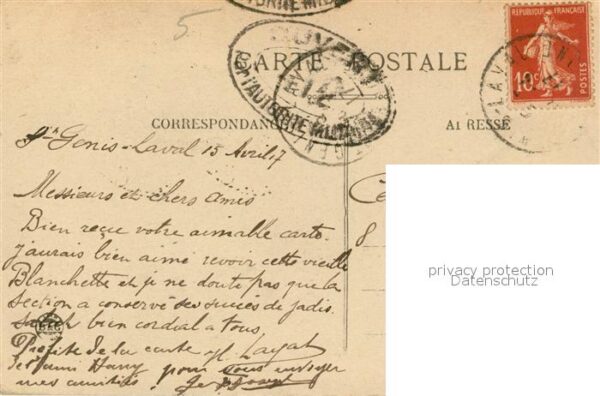 5
OUVERT
PAR L'AUTORITÉ MILITAIRE
CARTE POSTALE
RÉPUBLIQUE FRANÇAISE
10c
POSTES
LAVAL
CORRESPONDANCE
ADRESSE
St Genis-Laval 15 Avril 17
Messieurs et chers amis
Bien reçu votre aimable carte.
J'aurais bien aimé revoir cette vieille
Blanchette et je ne doute pas que la
section a conservé ses succès de jadis.
bien cordial a tous.
Profite de la carte H. Layat
de l'ami Hany pour vous envoyer
mes amitiés
8
privacy protection
Datenschutz